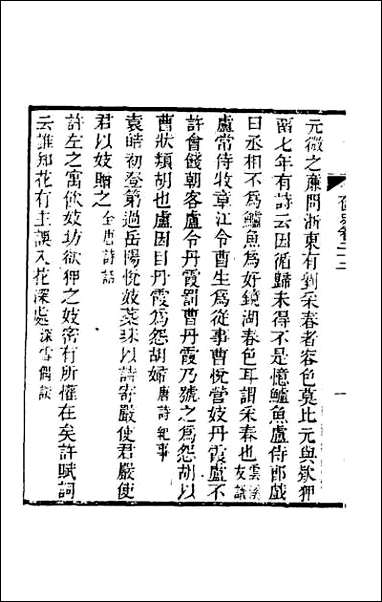 元微之廉問浙東有劉采春者容色莫比元與歡狎
留七年有詩云因循歸未得不是憶鱸魚盧侍郎戲
曰丞相不為鱸魚為好鏡湖春色耳謂采春也雲溪友議
盧常侍牧章江令曹生為從事曹悅營妓丹霞盧不
許會餞朝客盧令丹霞罰曹丹霞乃號之為怨胡以
曹狀類胡也盧因目丹霞為怨胡婦唐詩紀事
袁晴初登第過岳陽悅妓蕊珠以詩寄嚴使君嚴使
君以妓贈之全唐詩話
許左之寓飲妓坊欲狎之妓密有所懽在矣許賦詞
云誰知花有主誤入花深處深雪偶談